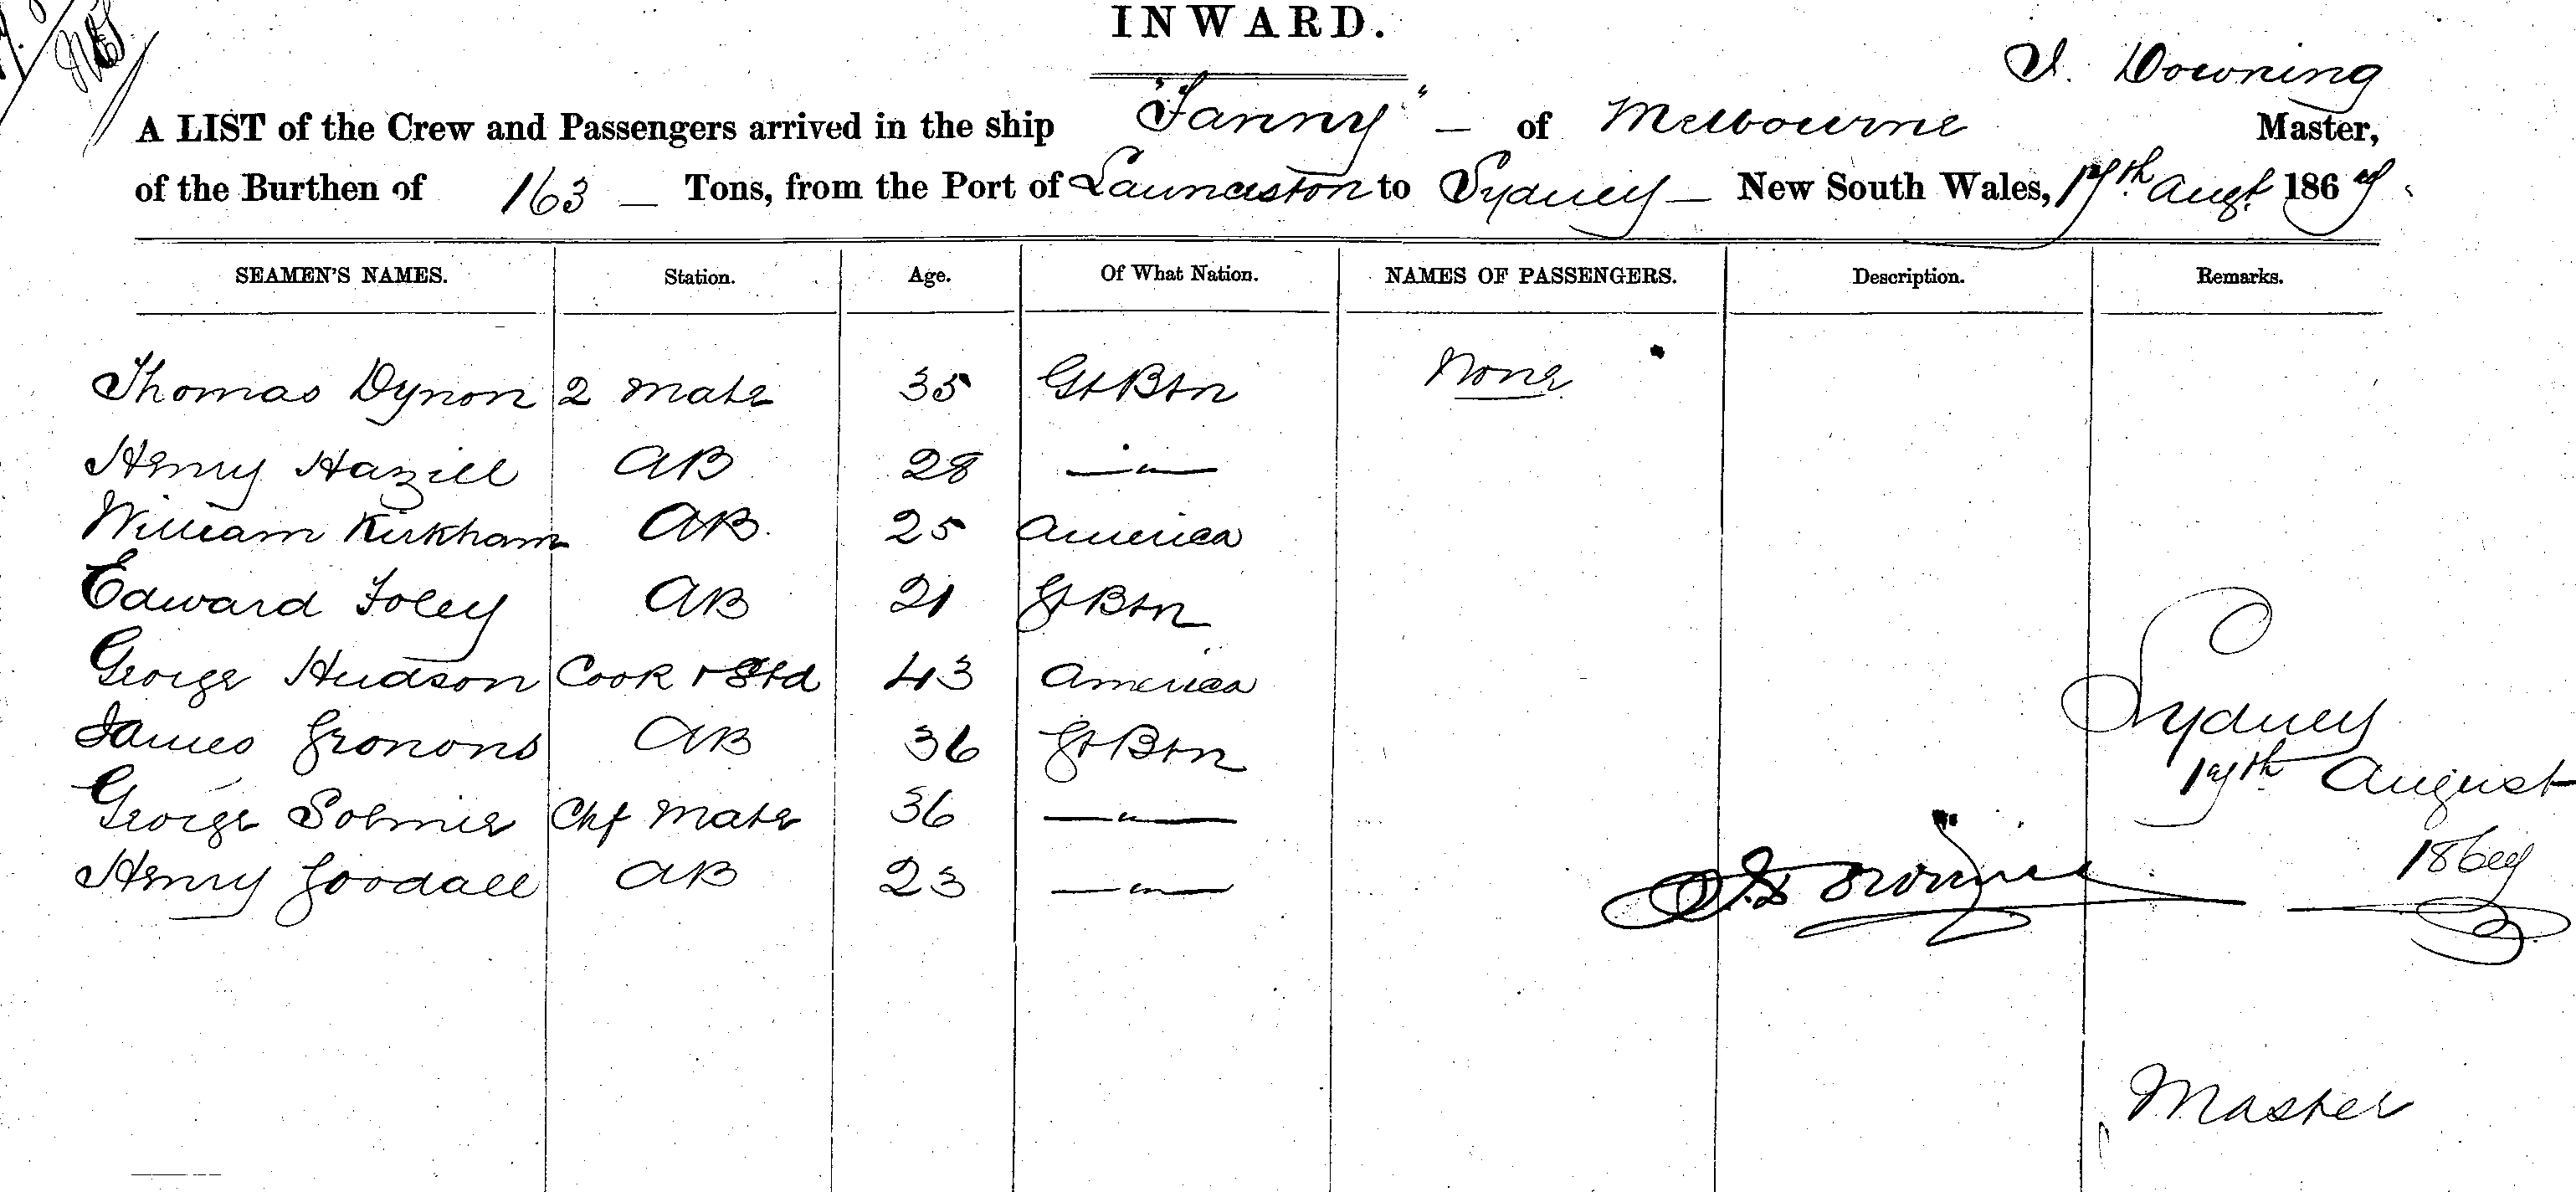 INWARD.
I. Downing
A LIST of the Crew and Passengers arrived in the ship "Fanny" — of Melbourne Master,
of the Burthen of 163 — Tons, from the Port of Launceston to Sydney — New South Wales, 17th Augt. 1867.
SEAMEN'S NAMES. Station. Age. Of What Nation. NAMES OF PASSENGERS. Description. Remarks.
Thomas Dynon 2 Mate 35 Gt Btn None
Henry Hazill AB 28 — " —
William Kirkham AB 25 America
Edward Foley AB 21 Gt Btn
George Hudson Cook + Std 43 America
James Gronons AB 36 Gt Btn
Sydney
17th August
George Solmie Chf Mate 36 — " —
1867
Henry Goodall AB 23 — " —
Master